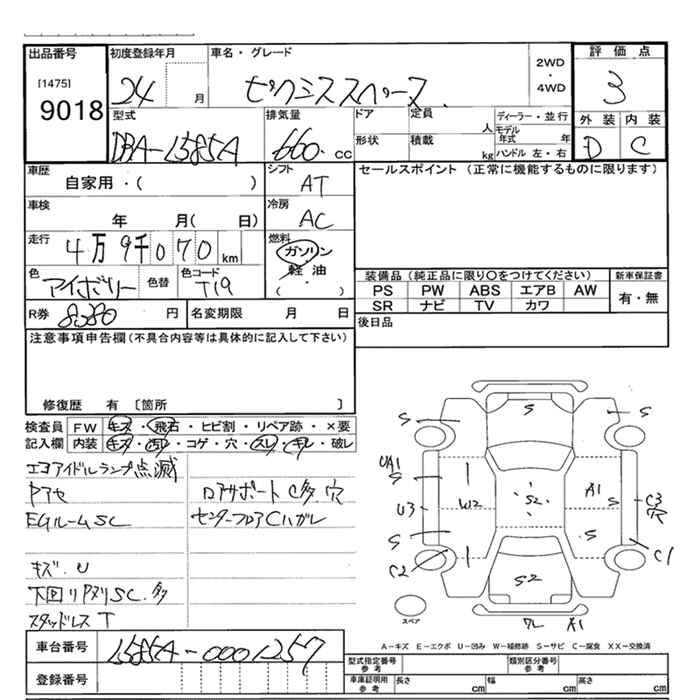 出品番号 初度登録年月 車名・グレード 2WD・4WD 評価点
[1475] 24 月 ピクシススペース 3
9018
型式 排気量 ドア 定員 人 ディーラー・並行 外装 内装
DBA-L585A 660. cc 形状 積載 kg モデル年式 年 ハンドル 左・右 D C
車歴 シフト セールスポイント (正常に機能するものに限ります)
自家用・( ) AT
車検 冷房
年 月( 日) AC
走行 燃料
4万9千070km ガソリン
色 色替 色コード 軽油 装備品(純正品に限り○をつけてください) 新車保証書
アイボリー T19 ・( ) PS PW ABS エアB AW 有・無
SR ナビ TV カワ
R券 8380 円 名変期限 月 日 後日品
注意事項申告欄(不具合内容等は具体的に記入して下さい)
修復歴 有 〔箇所 〕
検査員 FW キズ・飛石・ヒビ割・リペア跡・×要
記入欄 内装 キズ・汚レ・コゲ・穴・スレ・キレ・破レ
エコアイドルランプ点滅
Pアセ ロアサポートC多穴
EGルームSC センターフロアCハガレ
キズ.U
下回リサビSC.多
スタッドレスT
S S S
UA1 S A1 S C3穴
U3 W2 S2
S S
C2 S2 C1
スペア A1
A-キズ E-エクボ U-凹み W-補修跡 S-サビ C-腐食 XX-交換済
車台番号 L585A-0001257
型式指定番号 参考 類別区分番号 参考
登録番号 車庫証明用 参考 長さ cm 幅 cm 高さ cm